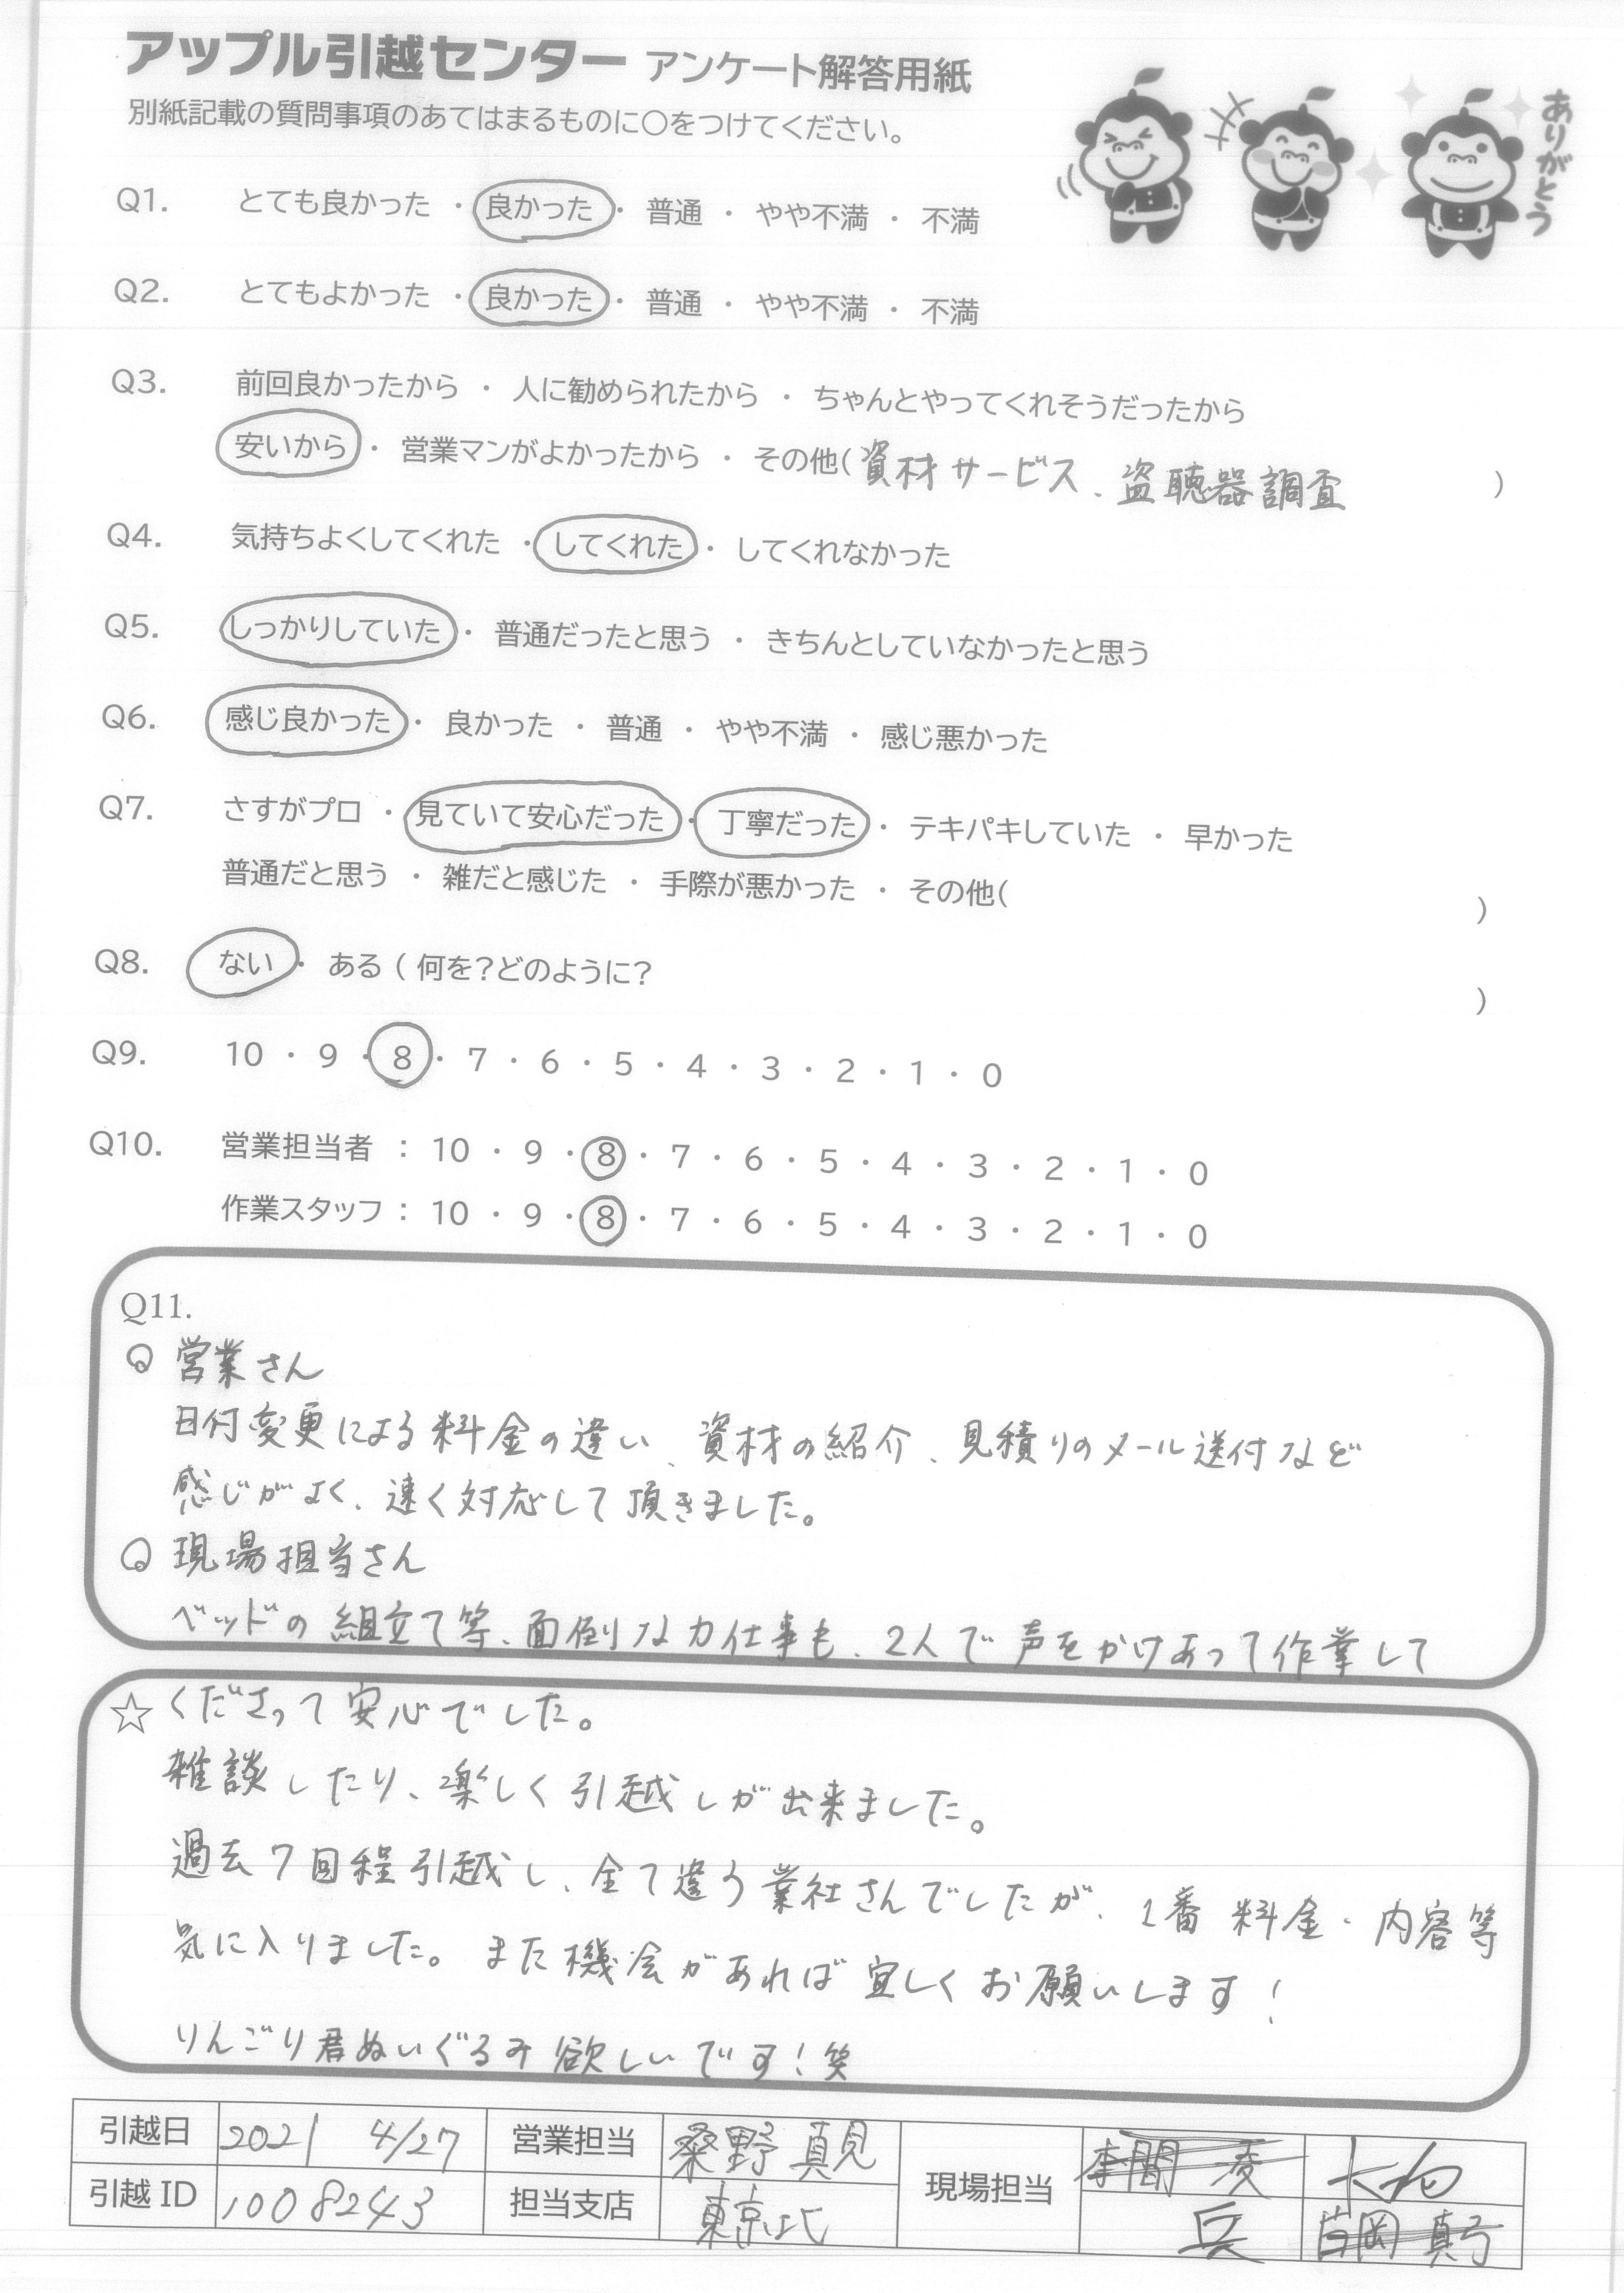 アップル引越センター アンケート解答用紙
別紙記載の質問事項のあてはまるものに○をつけてください。
ありがとう
Q1. とても良かった ・ 良かった ・ 普通 ・ やや不満 ・ 不満
Q2. とてもよかった ・ 良かった ・ 普通 ・ やや不満 ・ 不満
Q3. 前回良かったから ・ 人に勧められたから ・ ちゃんとやってくれそうだったから
安いから ・ 営業マンがよかったから ・ その他( 資材サービス、盗聴器調査 )
Q4. 気持ちよくしてくれた ・ してくれた ・ してくれなかった
Q5. しっかりしていた ・ 普通だったと思う ・ きちんとしていなかったと思う
Q6. 感じ良かった ・ 良かった ・ 普通 ・ やや不満 ・ 感じ悪かった
Q7. さすがプロ ・ 見ていて安心だった ・ 丁寧だった ・ テキパキしていた ・ 早かった
普通だと思う ・ 雑だと感じた ・ 手際が悪かった ・ その他( )
Q8. ない ・ ある ( 何を?どのように? )
Q9. 10 ・ 9 ・ 8 ・ 7 ・ 6 ・ 5 ・ 4 ・ 3 ・ 2 ・ 1 ・ 0
Q10. 営業担当者 : 10 ・ 9 ・ 8 ・ 7 ・ 6 ・ 5 ・ 4 ・ 3 ・ 2 ・ 1 ・ 0
作業スタッフ : 10 ・ 9 ・ 8 ・ 7 ・ 6 ・ 5 ・ 4 ・ 3 ・ 2 ・ 1 ・ 0
Q11.
Q 営業さん
日付変更による料金の違い、資材の紹介、見積りのメール送付など
感じがよく、速く対応して頂きました。
Q 現場担当さん
ベッドの組立て等、面倒な力仕事も、2人で声をかけあって作業して
☆ くださって安心でした。
雑談したり、楽しく引越しが出来ました。
過去7回程引越し、全て違う業社さんでしたが、1番 料金・内容等
気に入りました。また機会があれば宜しくお願いします!
りんごり君ぬいぐるみ欲しいです!笑
引越日 2021 4/27 営業担当 桑野 真見 現場担当 本間 凌
引越 ID 1008243 担当支店 東京北 兵 吉岡 真弓